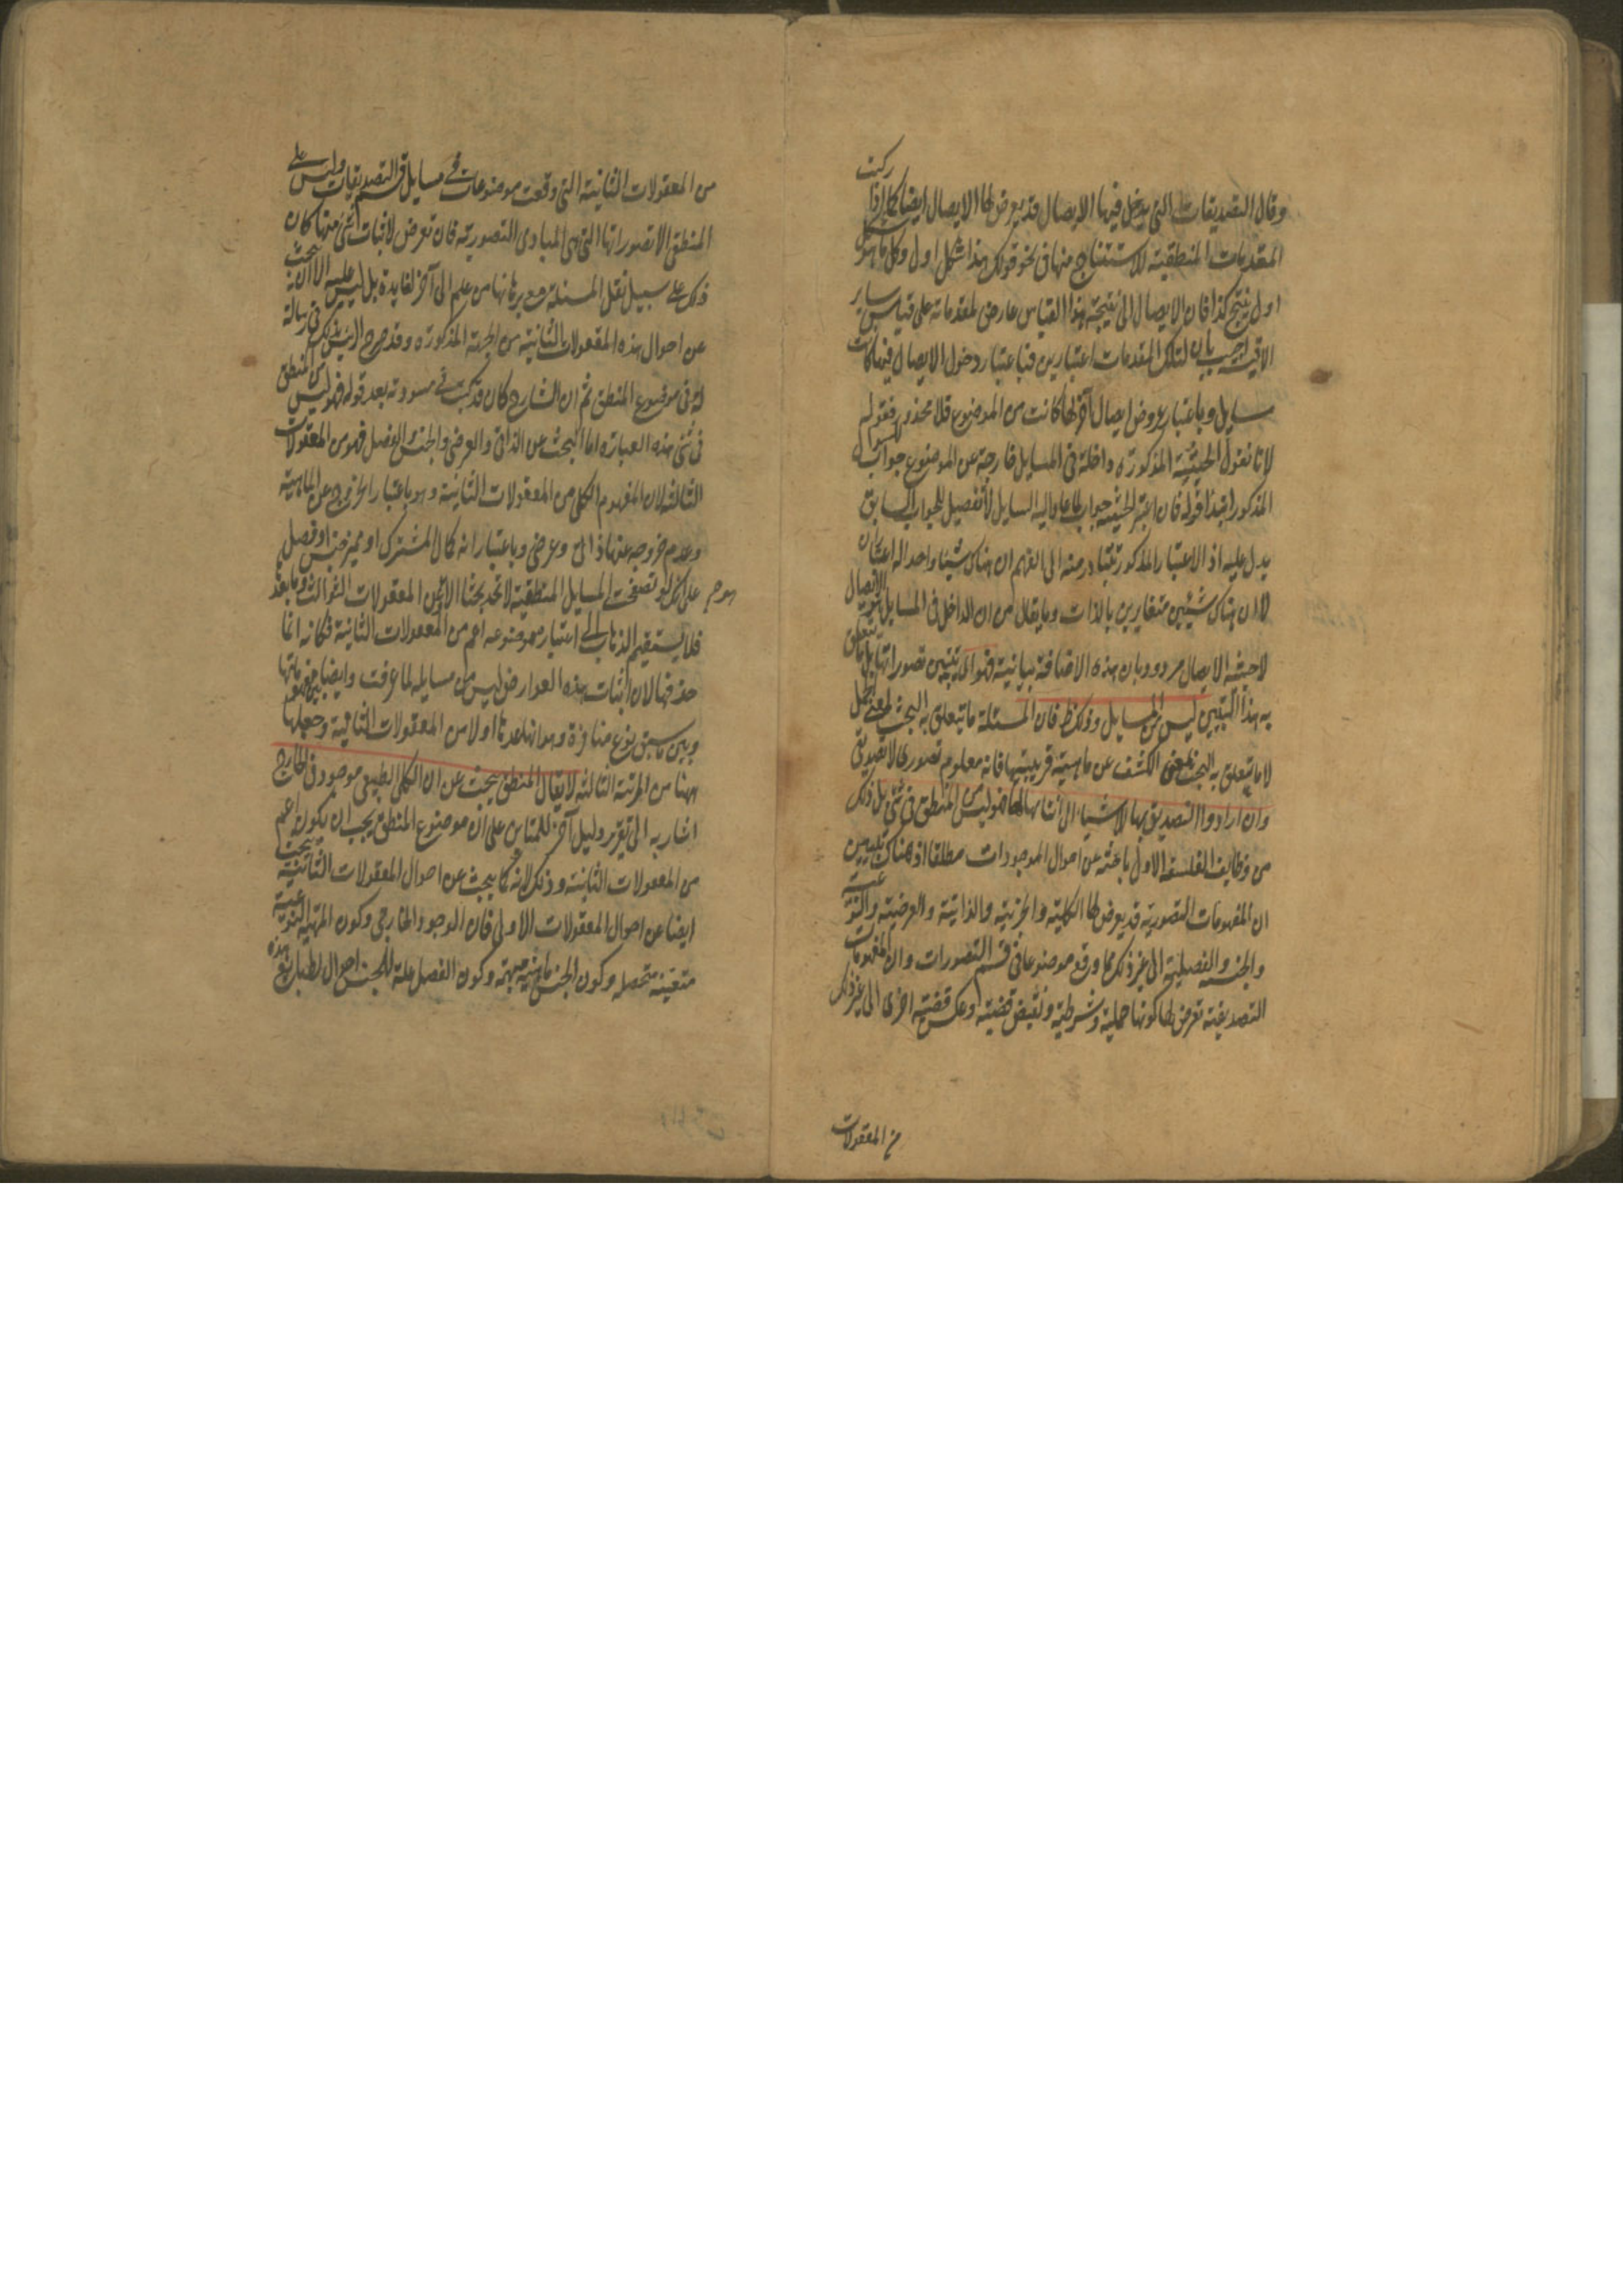 وقال التصديقات التي يدخل فيها الايصال قد يعرض لها الايصال ايضا كما اذا ركبت
المقدمات المنطقية للاستنتاج منها في نحو قولك هذا شكل اول وكل ما هو شكل
اول ينتج كذا فان الايصال الى نتيجة هذا القياس عارض لمقدماته على قياس ساير
الاقيسة اجيب بان لتلك المقدمات اعتبارين فباعتبار دخول الايصال فيها كانت
مسايل وباعتبار عروض ايصال آخر لها كانت من الموضوع فلا محذور فقوله
لانا نقول الحيثية المذكورة داخلة في المسايل خارجة عن الموضوع جواب للسؤال
المذكور فقوله فان اعتبر الحيثية جواب لما عاد اليه السايل لا تفصيل للجواب السابق
يدل عليه اذ الاعتبار المذكور يتبادر منه الى الفهم ان هناك شيئا واحدا له اعتباران
لا ان هناك شيئين متغايرين بالذات وما يقال من ان الداخل في المسايل هو الايصال
لا حيثية الايصال مردود بان هذه الاضافة بيانية قوله تبيين تصوراتها بل ما يتعلق
به هذا التبيين ليس من المسايل وذلك ظ فان المسئلة ما يتعلق به البحث بمعنى الحمل
لا ما يتعلق به البحث بمعنى الكشف عن ماهيته قريبيتها فانه معلوم تصوري لا تصديقي
وان ارادوا التصديق بها للاشياء اي اثباتها لها فهو ليس من المنطق في شئ بل ذلك
من وظايف الفلسفة الاولى باحثة عن احوال الموجودات مطلقا اذ هناك يتبين
ان المفهومات التصورية قد يعرض لها الكلية والجزئية والذاتية والعرضية والنوعية
والجنسية والفصلية الى غير ذلك مما وقع موضوعا في قسم التصورات وان المفهومات
التصديقية تعرض لها كونها حملية وشرطية ونقيض قضية وعكس قضية اخرى الى غير ذلك
من المعقولات
من المعقولات الثانية التي وقعت موضوعات في مسايل قسم التصديقات وليس على
المنطقي الا تصوراتها التي هي المبادى التصورية فان تعرض لاثبات شئ منها كان
ذلك على سبيل نقل المسئلة مع برهانها من علم الى آخر لفايدة بل ليس عليه الا ان يبحث
عن احوال هذه المعقولات الثانية من الجهة المذكورة وقد صرح الرئيس بذلك في رسالة
له في موضوع المنطق ثم ان الشارح كان قد كتب في مسودته بعد قوله فهو ليس من المنطق
في شئ هذه العبارة اما البحث عن الذاتي والعرضي والجنس والفصل فهو من المعقولات
الثالثة لان المفهوم الكلي من المعقولات الثانية وهو باعتبار الخروج عن الماهية
وعدم خروجه عنها ذاتي وعرضي وباعتبار انه كمال المشترك او مميز جنس او فصل
على انك لو تصفحت المسايل المنطقية لا تجد بحثا الا عن المعقولات الثوالث وما بعد
فلا يستقيم الذهاب الى اعتبار موضوعه اعم من المعقولات الثانية فكانه انما
حذفها لان اثبات هذه العوارض ليس من مسايله لما عرفت وايضا بين مفهومها
وبين ما سبق نوع منافرة وهو انها عدت اولا من المعقولات الثانية وجعلها
ههنا من المرتبة الثالثة لا يقال المنطقي يبحث عن ان الكلي الطبيعي موجود في الخارج
اشار به الى تقرير دليل آخر للمتأخرين على ان موضوع المنطق يجب ان يكون اعم
من المعقولات الثانية وذلك لانه كما يبحث عن احوال المعقولات الثانية يبحث
ايضا عن احوال المعقولات الاولى فان الوجود الخارجي وكون المهية النوعية
متعينة متحصلة وكون الجنس ماهية مبهمة وكون الفصل علة للجنس احوال لطبايع هذه